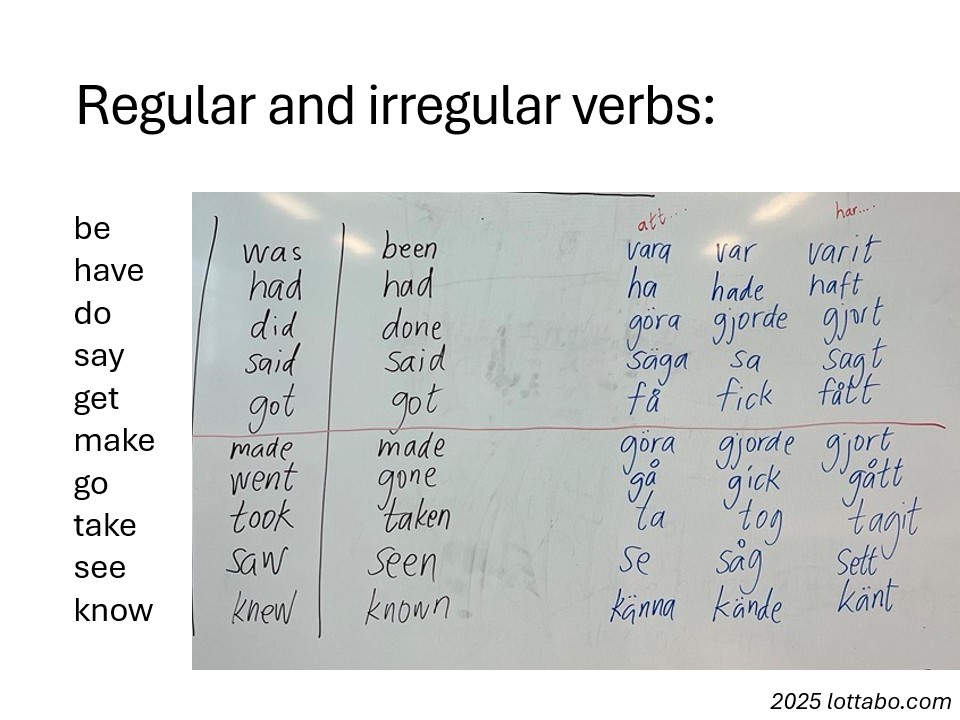 Regular and irregular verbs:
att... har...
be was been vara var varit
have had had ha hade haft
do did done göra gjorde gjort
say said said säga sa sagt
get got got få fick fått
make made made göra gjorde gjort
go went gone gå gick gått
take took taken ta tog tagit
see saw seen se såg sett
know knew known känna kände känt
2025 lottabo.com